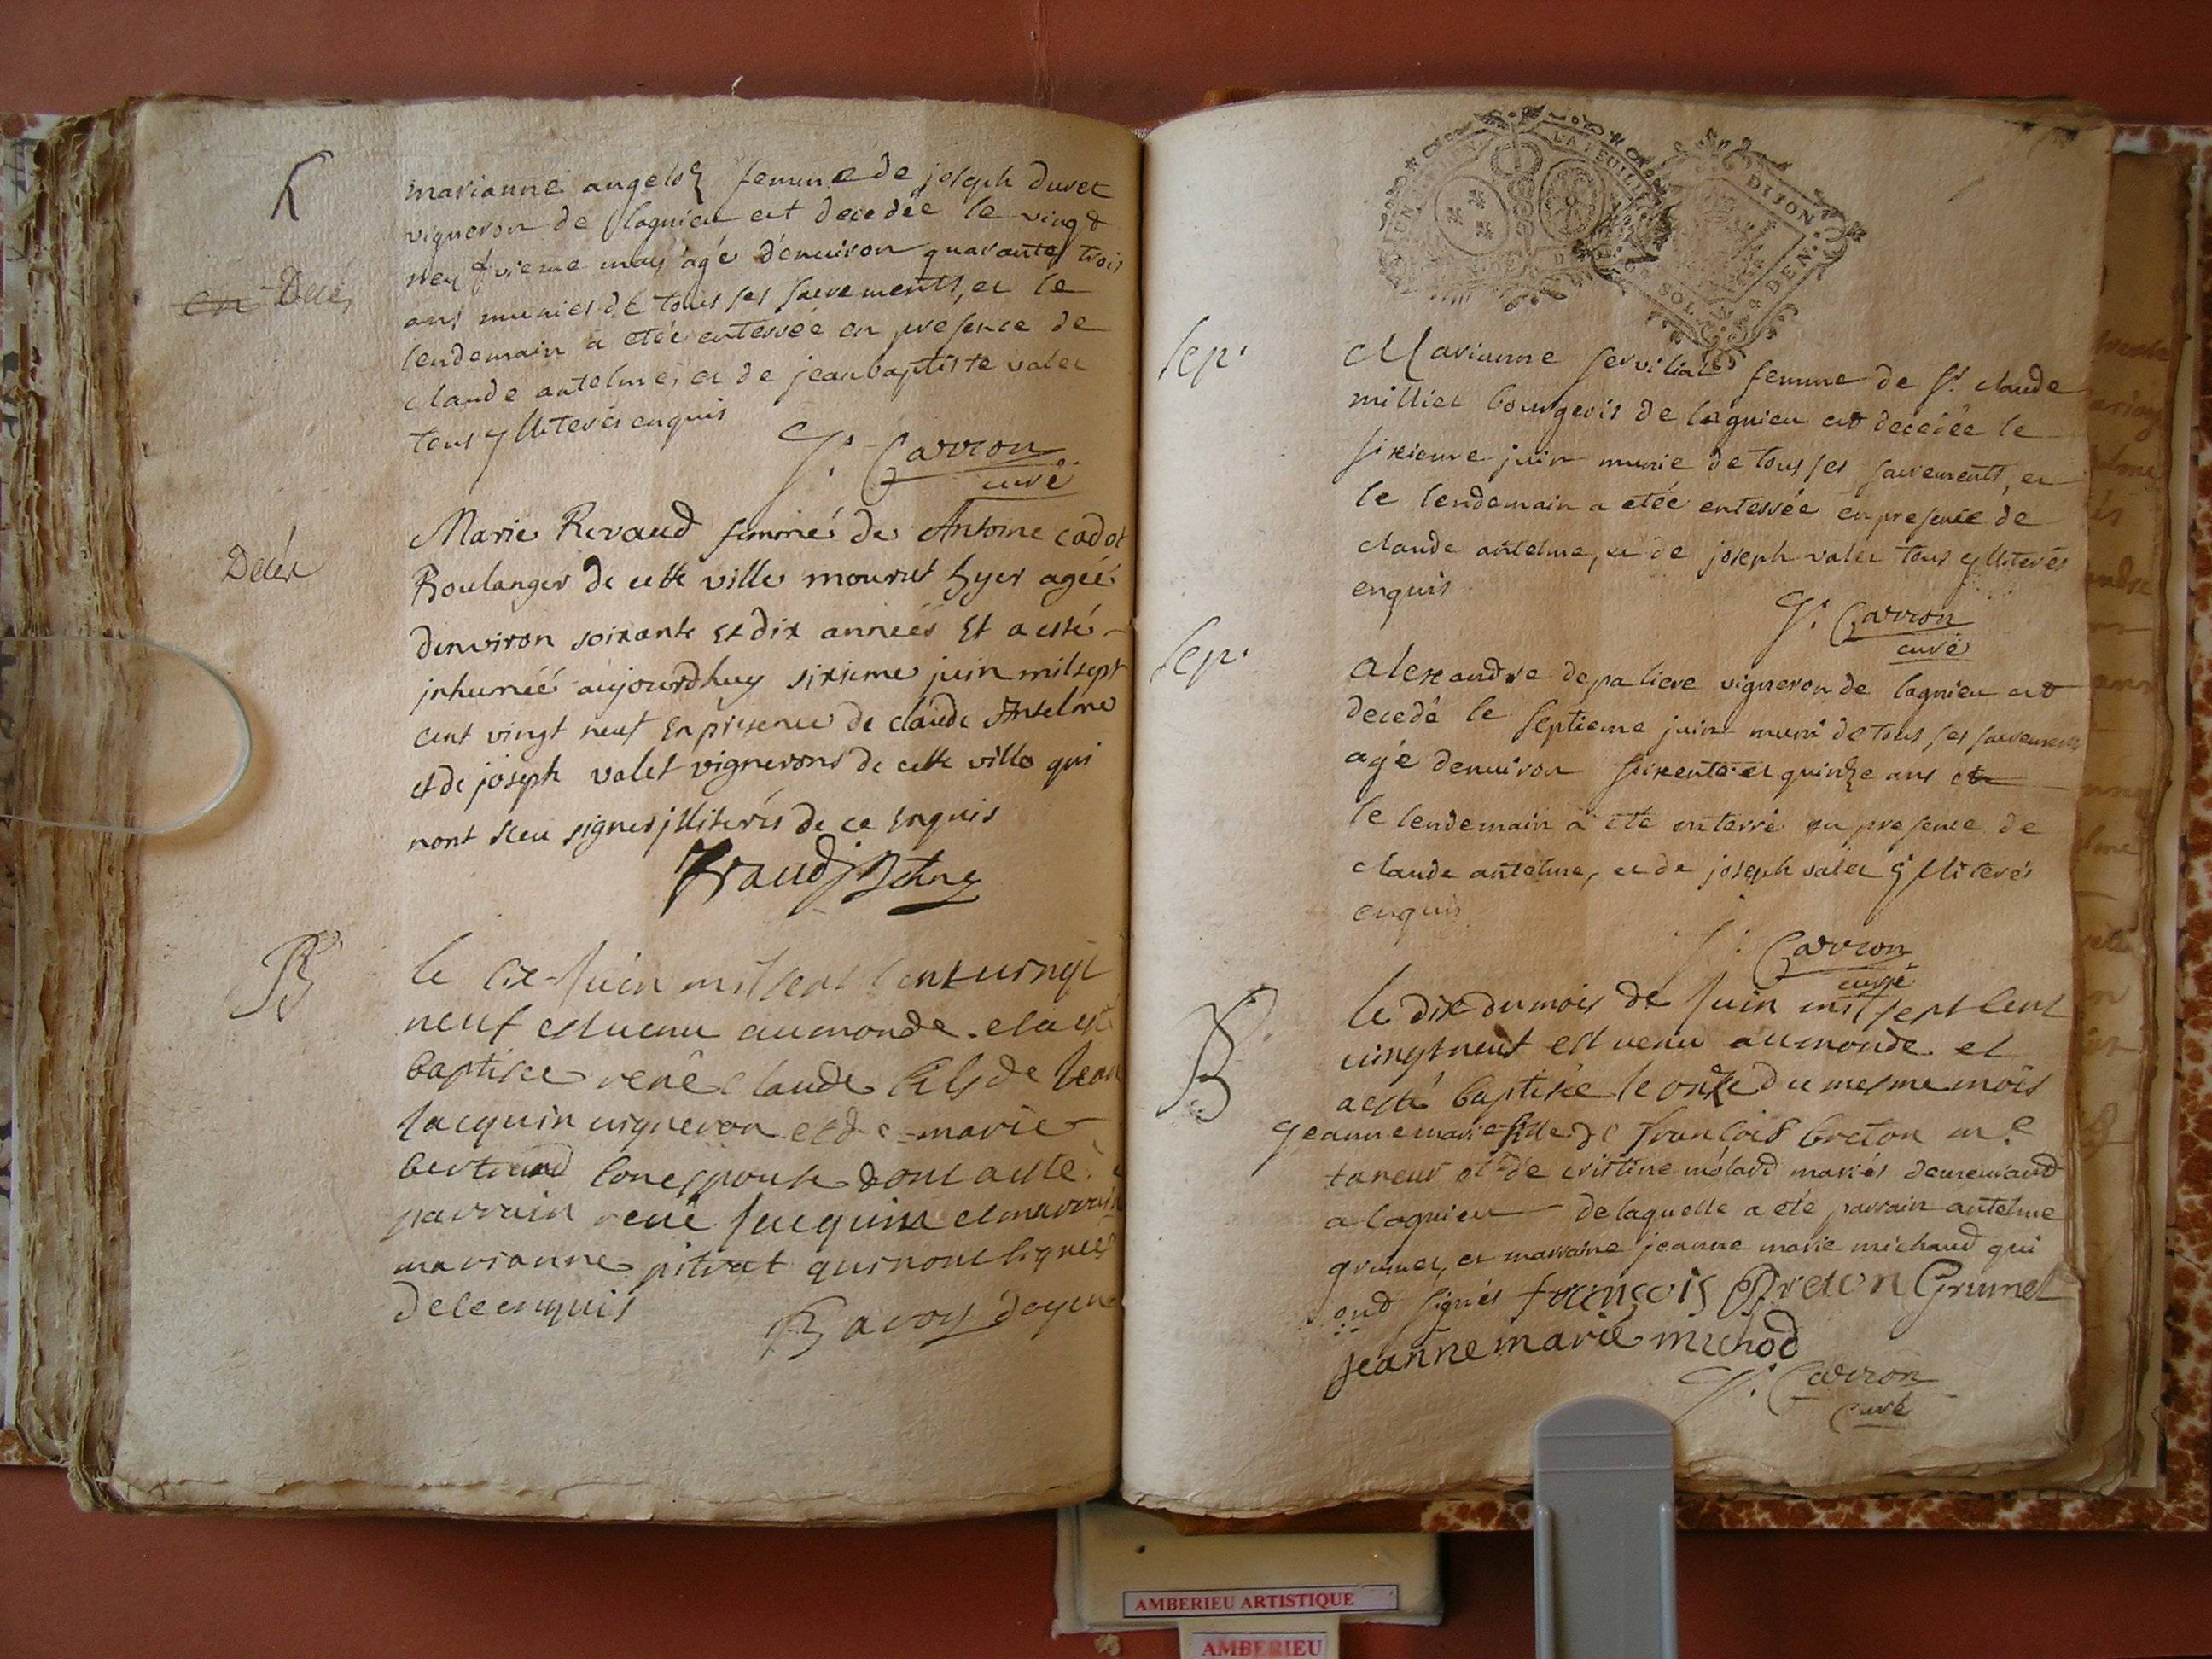 en Deces
marianne angeloz femme de joseph duret
vigneron de lagnieu est decedée le vingt
neufvieme may agé d'enuiron quarante trois
ans munies de tous ses sacrements, et le
lendemain a etée enterrée en presence de
claude antelme, et de jeanbaptiste valet
tous yllitterés enquis
J. Carron
curé
Decés
Marie Revaud femme de Antoine cadot
Boulanger de cette ville mourut hyer ageé
denviron soixante Et dix annees Et a esté
inhumeé aujourdhuy sixieme juin mil sept
cent vingt neuf En presence de claude Antelme
et de joseph valet vignerons de cette ville qui
nont sceu signer jlliterés de ce Enquis
B
le six Juin mil sept Cent uingt
neuf est uenu au monde et a esté
baptise rené Claude fils de Jean
Jacquin uigneron et de marie
bertrand Son espouse dont a esté
parrain rené Jacquin et marraine
marianne pitrat qui nont Signés
de ce enquis
Bavoy doyen
LA FEUILLE
DIJON
DEN.
SOL.
Sep.
Marianne servilial femme de Sr. claude
milliet bourgeois de lagnieu est decedée le
sixieme juin munie de tous ses sacrements, et
le lendemain a etée enterrée en presence de
claude antelme, et de joseph valet tous yllterés
enquis
J. Carron
curé
Sep.
alexandre depaliere vigneron de lagnieu est
decedé le septieme juin muni de tous ses sacrements
agé denuiron soixente et quinze ans et
le lendemain a eté enterré en presence de
claude antelme, et de joseph valet ylliterés
enquis
J. Carron
curé
B
le dix du mois de Juin mil sept Cent
uingt neuf est uenu au monde et
a esté baptisée le onze du mesme mois
jeanne marie fille de francois breton me
taneur et de cristine molard mariés demeurand
a lagnieu de laquelle a eté parrain antelme
grumet, et marraine jeanne marie michaud qui
ond signés francois Breton Grumet
jeanne marie michod
J. Carron
curé
AMBERIEU ARTISTIQUE
AMBERIEU